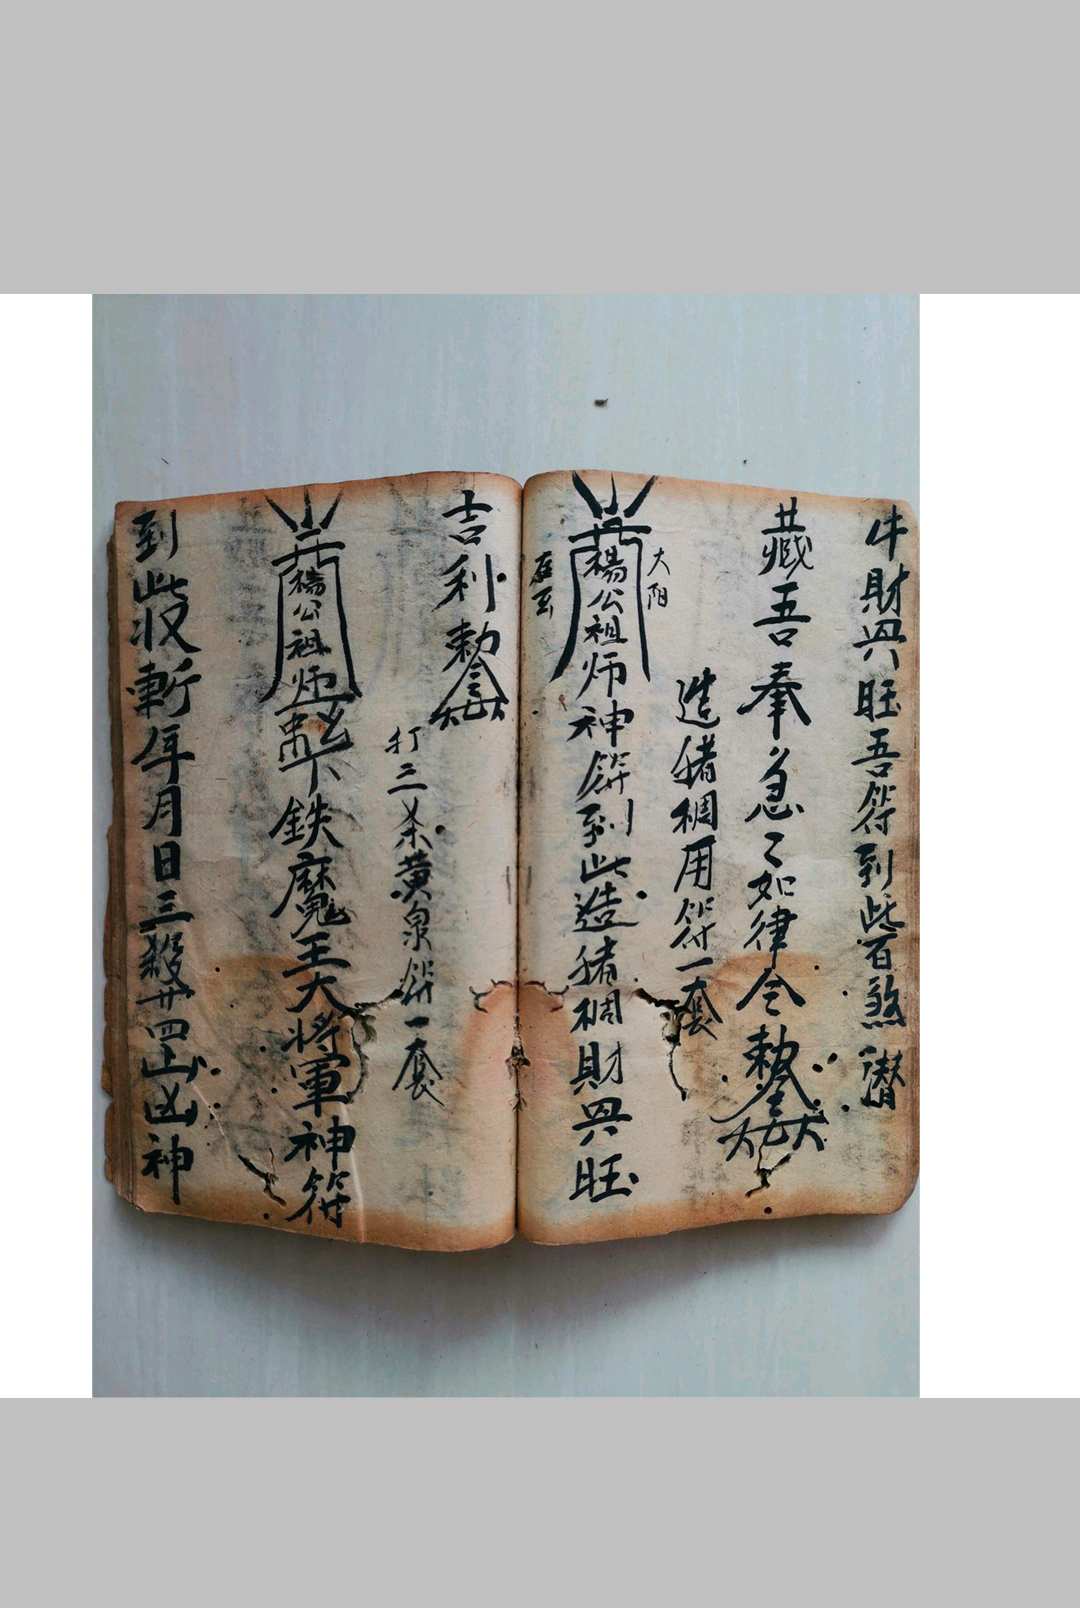 牛財興旺吾符到此百煞潜
藏吾奉急〻如律令勅
造猪稠用符一套
大阳
楊公祖师神符到此造猪稠財興旺
吉利勅令
打三杀黄泉符一套
楊公祖师 下鉄魔王大将軍神符
到此收斬年月日三殺廿四山凶神